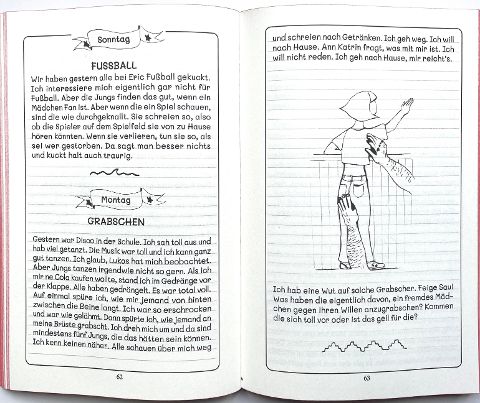 Sonntag
FUSSBALL
Wir haben gestern alle bei Eric Fußball gekuckt.
Ich interessiere mich eigentlich gar nicht für
Fußball. Aber die Jungs finden das gut, wenn ein
Mädchen Fan ist. Aber wenn die ein Spiel schauen,
sind die wie durchgeknallt. Sie schreien so, also
ob die Spieler auf dem Spielfeld sie von zu Hause
hören könnten. Wenn sie verlieren, tun sie so, als
sei wer gestorben. Da sagt man besser nichts
und kuckt halt auch traurig.
Montag
GRABSCHEN
Gestern war Disco in der Schule. Ich sah toll aus und
hab viel getanzt. Die Musik war toll und ich kann ganz
gut tanzen. Ich glaub, Lukas hat mich beobachtet.
Aber Jungs tanzen irgendwie nicht so gern. Als ich
mir ne Cola kaufen wollte, stand ich im Gedränge vor
der Klappe. Alle haben gedrängelt. Es war total voll.
Auf einmal spüre ich, wie mir jemand von hinten
zwischen die Beine langt. Ich war so erschrocken
und war wie gelähmt. Dann spürte ich, wie jemand an
meine Brüste grabscht. Ich dreh mich um und da sind
mindestens fünf Jungs, die das hätten sein können.
Ich kenn keinen näher. Alle schauen über mich weg
62
und schreien nach Getränken. Ich geh weg. Ich will
nach Hause. Ann Katrin fragt, was mit mir ist. Ich
will nicht reden. Ich geh nach Hause, mir reicht's.
Ich hab eine Wut auf solche Grabscher. Feige Sau!
Was haben die eigentlich davon, ein fremdes Mäd-
chen gegen ihren Willen anzugrabschen? Kommen
die sich toll vor oder ist das geil für die?
63